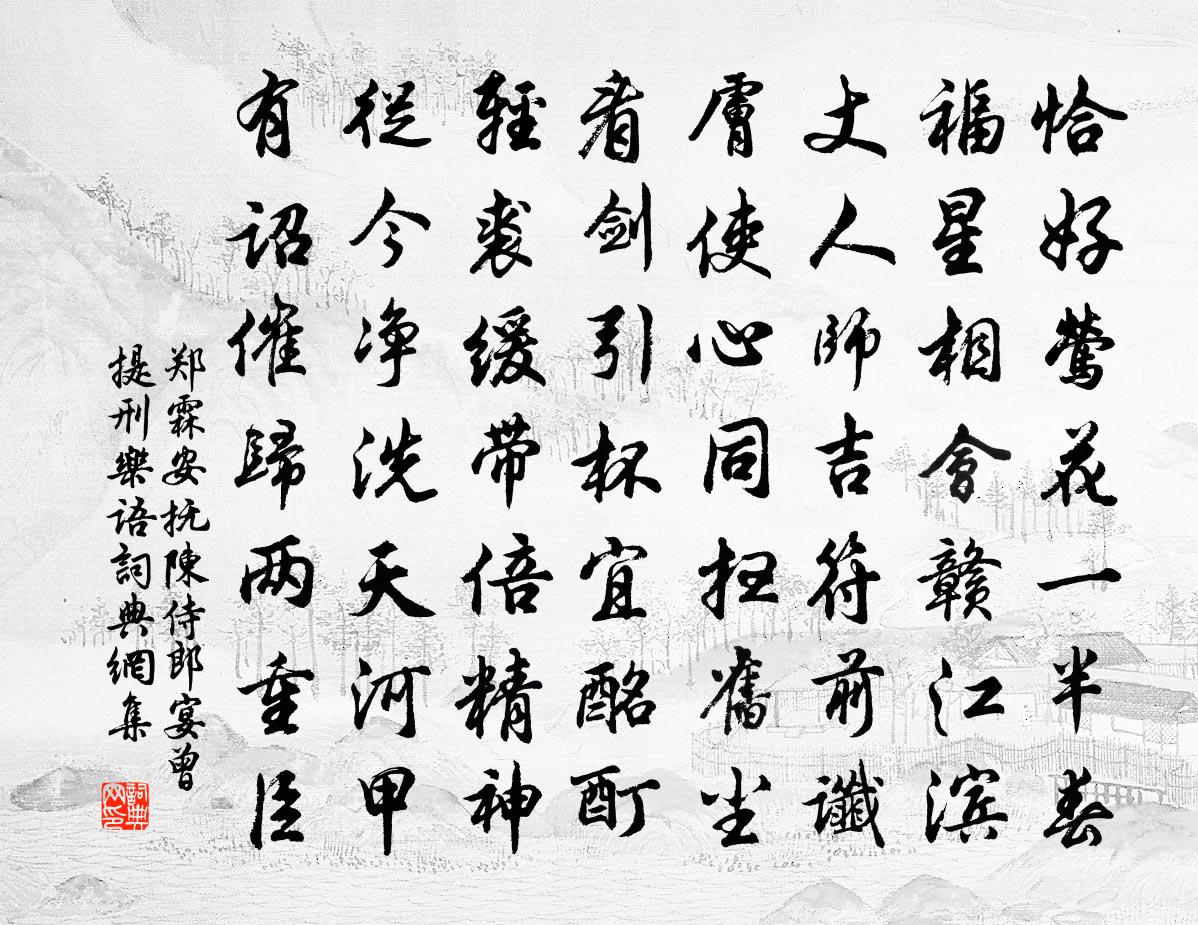 恰好鶯花一半春
福星相會贛江濱
丈人師吉符前讖
膚使心同扫舊尘
看劍引杯宜酩酊
輕裘缓带倍精神
從今净洗天河甲
有詔催歸两重臣
郑霖安抚陳侍郎宴曾
提刑樂語詞典網集
詞典网印